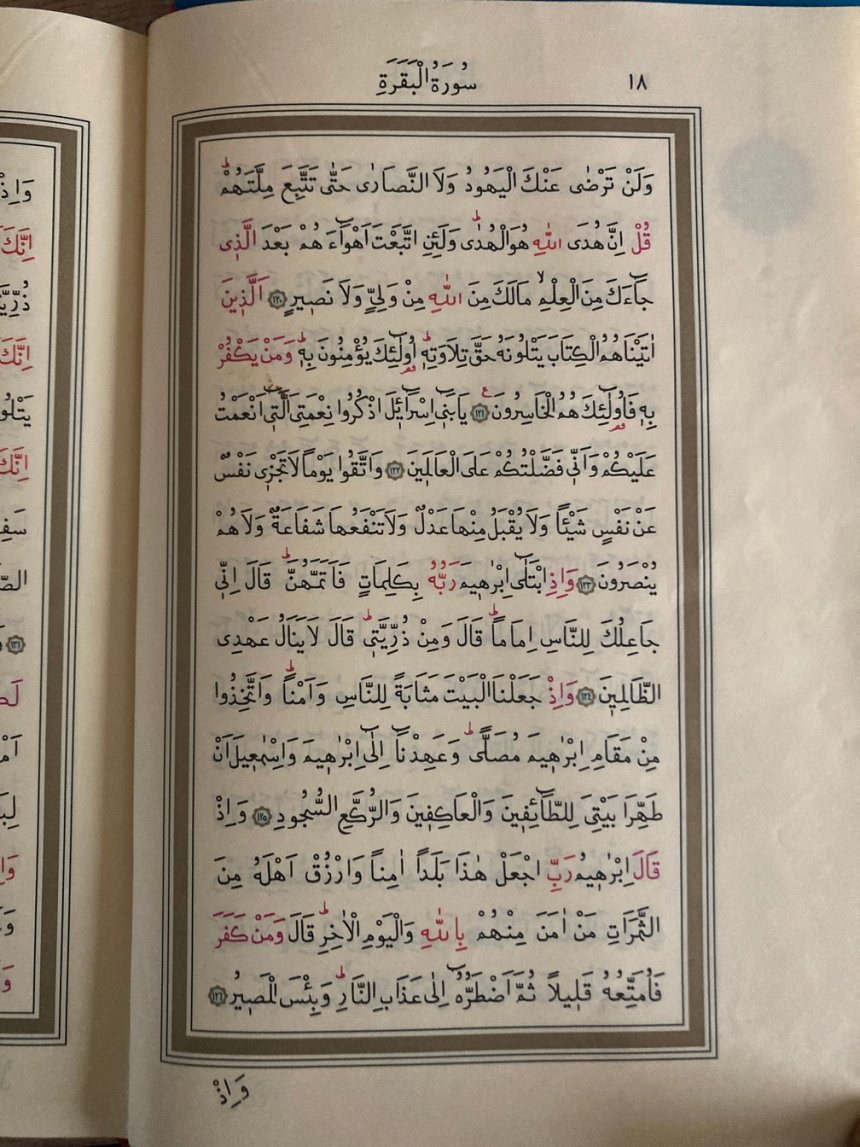 ١٨
سُورَةُ الْبَقَرَةِ
وَلَنْ تَرْضٰى عَنْكَ الْيَهُودُ وَلَا النَّصَارٰى حَتّٰى تَتَّبِعَ مِلَّتَهُمْۜ
قُلْ اِنَّ هُدَى اللّٰهِ هُوَ الْهُدٰىۜ وَلَئِنِ اتَّبَعْتَ اَهْوَٓاءَ هُمْ بَعْدَ الَّذ۪ى
جَٓاءَكَ مِنَ الْعِلْمِۙ مَالَكَ مِنَ اللّٰهِ مِنْ وَلِىٍّ وَلَا نَص۪يرٍ ﴿١٢٠﴾ اَلَّذ۪ينَ
اٰتَيْنَاهُمُ الْكِتَابَ يَتْلُونَهُ حَقَّ تِلَاوَتِه۪ۜ اُو۬لٰٓئِكَ يُؤْمِنُونَ بِه۪ۜ وَمَنْ يَكْفُرْ
بِه۪ فَاُو۬لٰٓئِكَ هُمُ الْخَاسِرُونَ ﴿١٢١﴾ يَابَن۪ٓى اِسْرَٓائ۪لَ اذْكُرُوا نِعْمَتِىَ الَّت۪ٓى اَنْعَمْتُ
عَلَيْكُمْ وَاَنّ۪ى فَضَّلْتُكُمْ عَلَى الْعَالَم۪ينَ ﴿١٢٢﴾ وَاتَّقُوا يَوْماً لَا تَجْز۪ى نَفْسٌ
عَنْ نَفْسٍ شَيْـٔاً وَلَا يُقْبَلُ مِنْهَا عَدْلٌ وَلَا تَنْفَعُهَا شَفَاعَةٌ وَلَا هُمْ
يُنْصَرُونَ ﴿١٢٣﴾ وَاِذِ ابْتَلٰٓى اِبْرٰه۪يمَ رَبُّهُ بِكَلِمَاتٍ فَاَتَمَّهُنَّۜ قَالَ اِنّ۪ى
جَاعِلُكَ لِلنَّاسِ اِمَاماًۜ قَالَ وَمِنْ ذُرِّيَّت۪ىۜ قَالَ لَا يَنَالُ عَهْدِى
الظَّالِم۪ينَ ﴿١٢٤﴾ وَاِذْ جَعَلْنَا الْبَيْتَ مَثَابَةً لِلنَّاسِ وَاَمْناًۜ وَاتَّخِذُوا
مِنْ مَقَامِ اِبْرٰه۪يمَ مُصَلًّىۜ وَعَهِدْنَٓا اِلٰٓى اِبْرٰه۪يمَ وَاِسْمٰع۪يلَ اَنْ
طَهِّرَا بَيْتِىَ لِلطَّٓائِف۪ينَ وَالْعَاكِف۪ينَ وَالرُّكَّعِ السُّجُودِ ﴿١٢٥﴾ وَاِذْ
قَالَ اِبْرٰه۪يمُ رَبِّ اجْعَلْ هٰذَا بَلَداً اٰمِناً وَارْزُقْ اَهْلَهُ مِنَ
الثَّمَرَاتِ مَنْ اٰمَنَ مِنْهُمْ بِاللّٰهِ وَالْيَوْمِ الْاٰخِرِۜ قَالَ وَمَنْ كَفَرَ
فَاُمَتِّعُهُ قَل۪يلاً ثُمَّ اَضْطَرُّهُٓ اِلٰى عَذَابِ النَّارِۜ وَبِئْسَ الْمَص۪يرُ ﴿١٢٦﴾
وَاِذْ